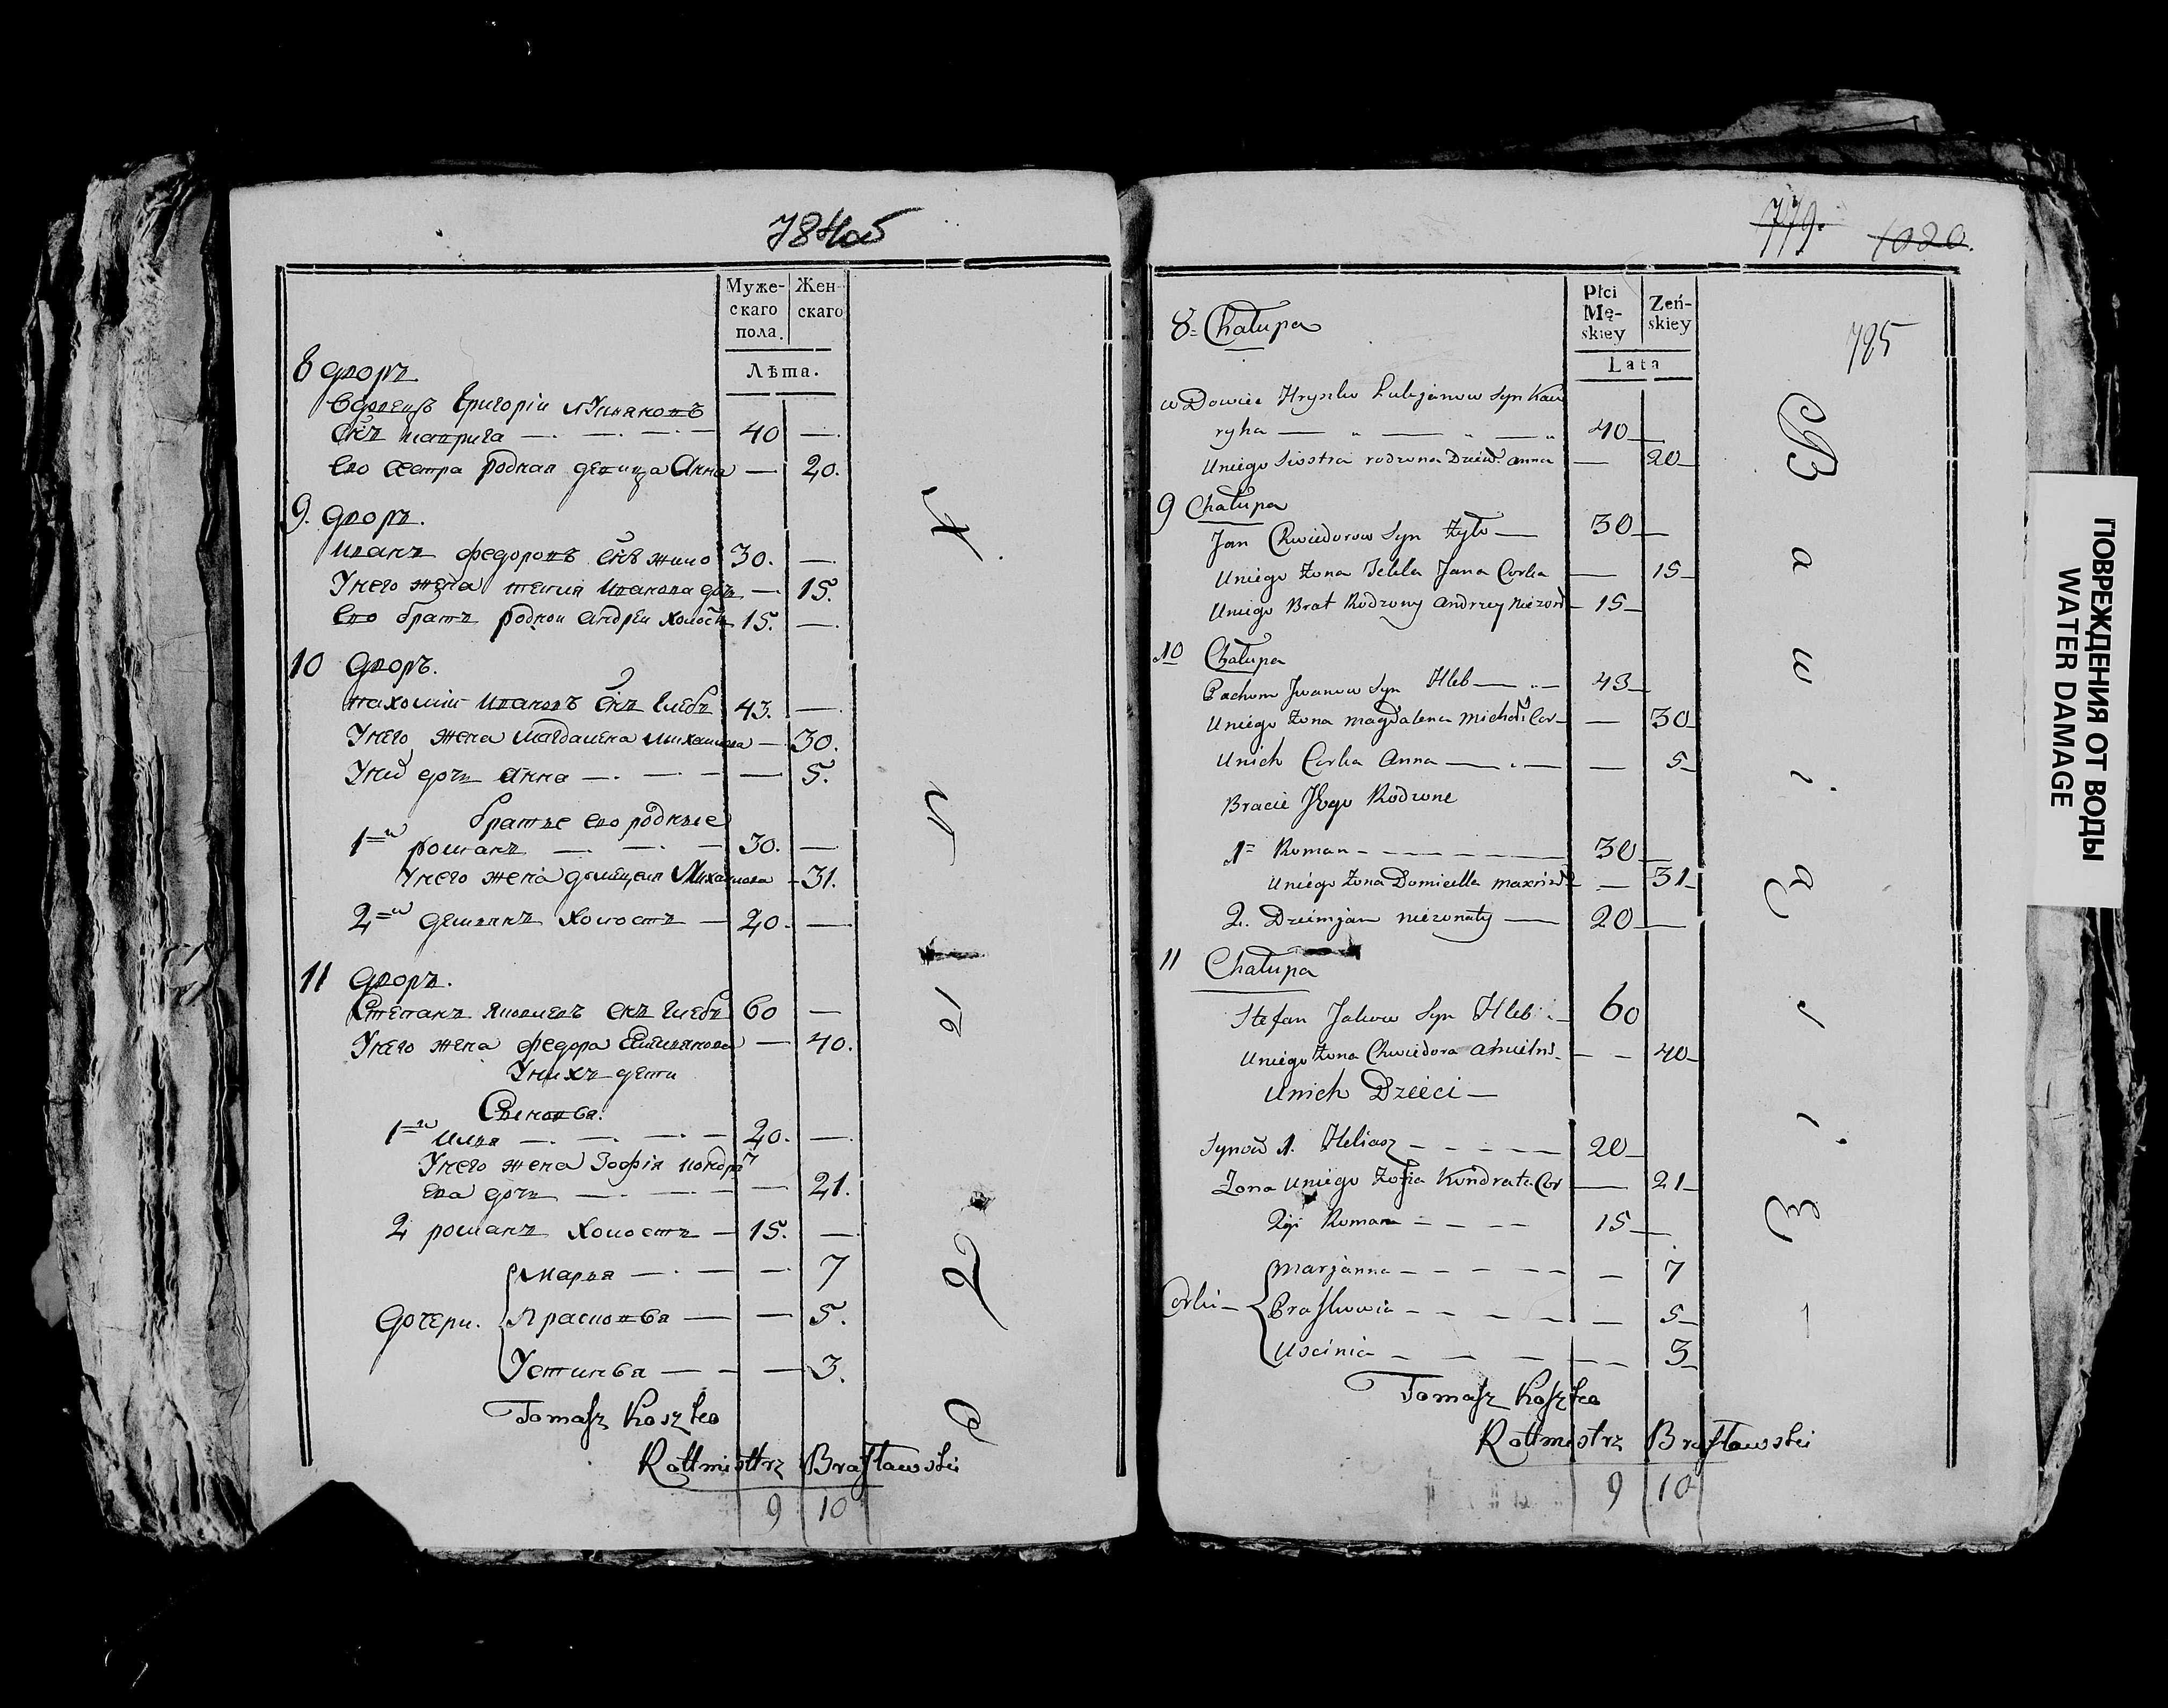 784об
Муже-
скаго
пола.
Жен-
скаго
Лѣта.
8 дворъ
Вдовецъ Григорій
снъ 40 —
его сестра родная девица Анна — 20.
9. дворъ.
Иванъ Федоровъ снъ Жило 30. —
У него жена Текля Иванова дочь — 15.
его братъ родной Андрей холостъ 15. —
10 дворъ.
Пахомий Ивановъ снъ Глебъ 43. —
У него жена Магдалена Михайлова — 30.
У них дочь Анна — 5.
братье его родные
1=й романъ — 30. —
У него жена домицеля — 31.
2=й демьянъ холостъ — 20. —
11 дворъ.
Степанъ Яковлевъ снъ Глебъ 60 —
У него жена Федора Емельянова — 40.
У нихъ дети
Сыновья.
1=й Илья — 20. —
У него жена Зофія кондрать
ева дочь — 21.
2 романъ холостъ — 15. —
Марья — 7
Дочери. Прасковья — 5.
Устинья — 3.
Tomasz Koszko
Rottmistrz Brasławski
9 10
779. 1020.
785
Płci
Mę-
skiey
Zeń-
skiey
Lata
8= Chałupa
wDowiec Hryszko Syn Kaw
ryha — 40 —
Uniego Siostra rodzona Dziew: Anna — 20 —
9 Chałupa
Jan Chwiedorow Syn Żyło — 30 —
Uniego Żona Tekla Jana Corka — 15 —
Uniego Brat Rodzony Andrzey Nieżon — 15 —
10 Chałupa
Pachom Jwanow Syn Hleb — 43 —
Uniego Żona Magdalena Michał: Cor — 30
Unich Corka Anna — 5 —
Bracie Jego Rodzone
1= Roman — 30 —
Uniego Żona Domicella — 31 —
2. Dziemjan nieżonaty — 20 —
11 Chałupa
Stefan Jakow Syn Hleb — 60
Uniego Żona Chwiedora — 40 —
Unich Dzieci —
Synow 1. Heliasz — 20 —
Żona Uniego Zofia Kondrata Cor — 21 —
2gi Roman — 15 —
Marjanna — 7
Corki — Praskowia — 5 —
Uscinia — 3 —
Tomasz Koszko
Rottmistrz Brasławski
9 10
ПОВРЕЖДЕНИЯ ОТ ВОДЫ
WATER DAMAGE